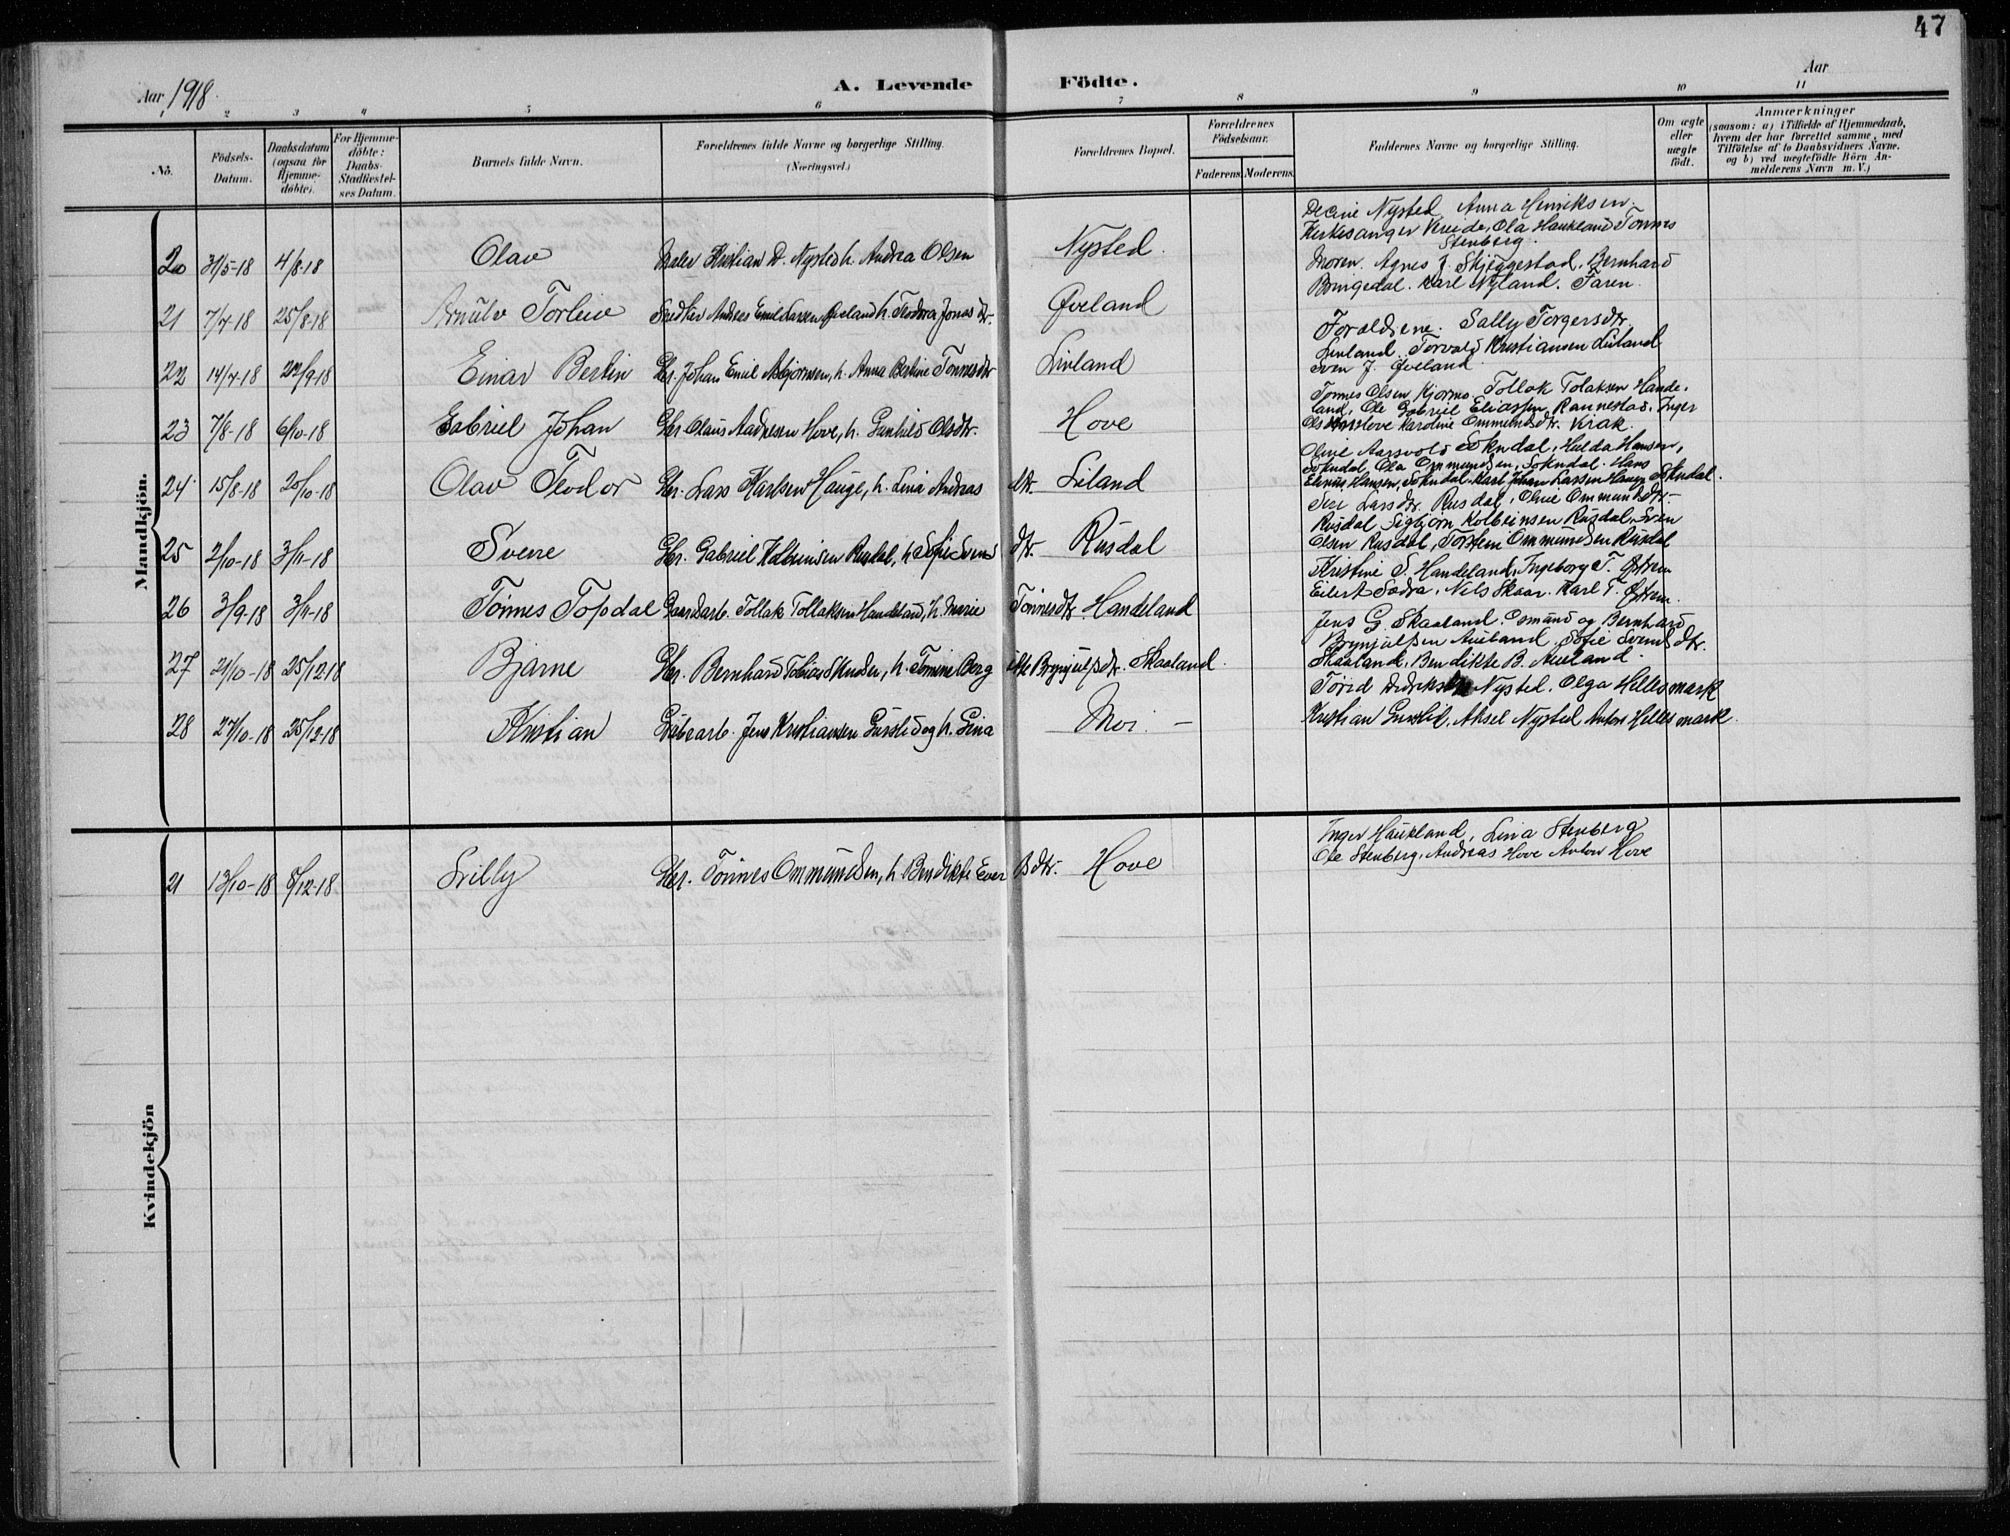 47
Aar 1918.
A. Levende Födte.
Aar
1 2 3 4 5 6 7 8 9 10 11
No.
Födsels-Datum.
Daabsdatum (ogsaa for Hjemme-döbte).
For Hjemme-döbte: Daabs-Stadfæstel-ses Datum.
Barnets fulde Navn.
Forældrenes fulde Navne og borgerlige Stilling. (Næringsvei.)
Forældrenes Bopæl.
Forældrenes Födselsaar.
Faderens Moderens
Faddernes Navne og borgerlige Stilling.
Om ægte eller uægte födt.
Anmærkninger
(saasom: a) i Tilfælde af Hjemmedaab,
hvem der har forrettet samme, med
Tilföielse af to Daabsvidners Navne.
og b) ved uægtefödte Börn An-
melderens Navn m. V.)
Mandkjön.
20 31/5-18 4/8-18 Olav Maler Kristian D. Nysted h. Andrea Olsen Nysted.
Nysted Anna Henriksen.
Kirkesanger Ola Haukland Tønnes
Stenberg.
21 7/7-18 25/8-18 Arnulv Torleiv Snedker Andreas Emil Larsen Øveland h. Teodora Jonasdtr. Øveland
Moren. Agnes J. Skjeggestad. Bernhard
Bringedal. Karl Nyland. Faren.
22 14/7-18 22/9-18 Einar Bertin Gbr. Johan Emil Asbjørnsen, h. Anna Bertine Tønnesdtr Livland
Foræld­rene. Sally Torgersdtr.
Livland Torvald Kristiansen Livland
Sven J. Øveland
23 7/8-18 6/10-18 Gabriel Johan Gbr. Olaus Andresen Hove, h. Gunhild Olsdtr. Hove
Tønnes Olsen Tollak Tolaksen Hande-
land, Ole Gabriel Eliassen Rannestad. Inger
Hove Karoline Ommundsdtr. Krak.
24 15/8-18 20/10-18 Olav Teodor Gbr. Lars Karlsen Hauge, h. Lina Andreas dtr. Liland
Oline Aarsvold Sokndal, Hulda Hansen,
Sokndal, Ola Ommundsen, Sokndal. Hans
Elinus Hansen, Sokndal, Karl Johan Larsen Hauge Sokndal.
25 2/10-18 3/11-18 Sverre Gbr. Gabriel Kolbeinsen Rusdal, h. Sofie Svens dtr. Rusdal
Siri Larsdtr. Rusdal, Oline Ommundsdtr.
Rusdal Sigbjørn Kolbeinsen Rusdal, Sven
Olsen Rusdal, Torstein Ommundsen Rusdal
26 3/9-18 3/11-18 Tønnes Topdal Gaardarb. Tollak Tollaksen Handeland, h. Marie Tønnesdtr. Handeland
Kristine T. Handeland, Ingeborg T. Østrem
Eilert Sodra. Nils Skaar. Karl T. Østrem.
27 21/10-18 25/12-18 Bjarne Gbr. Bernhard Tobias Knudsen, h. Tomine Berg itte Brynjulfsdtr. Skaaland.
Jens G. Skaaland. Osmund og Bernhard
Brynjulfsen Aueland. Sofie Svends dtr.
Skaaland. Bendikte B. Aueland.
28 27/10-18 25/12-18 Kristian Grubearb. Jens Kristiansen Gursli og h. Gina Moi. —
Torid Nysted. Olga Hellesmark
Kristian Gursli, Aksel Nysted Anton Hellesmark.
Kvindekjön
21 13/10-18 8/12-18 Lilly Gbr. Tønnes Ommundsen, h. Bendikte Ever tsdtr. Hove
Inger Haukland, Lina Stenberg
Ole Stenberg, Andreas Hove Anton Hove